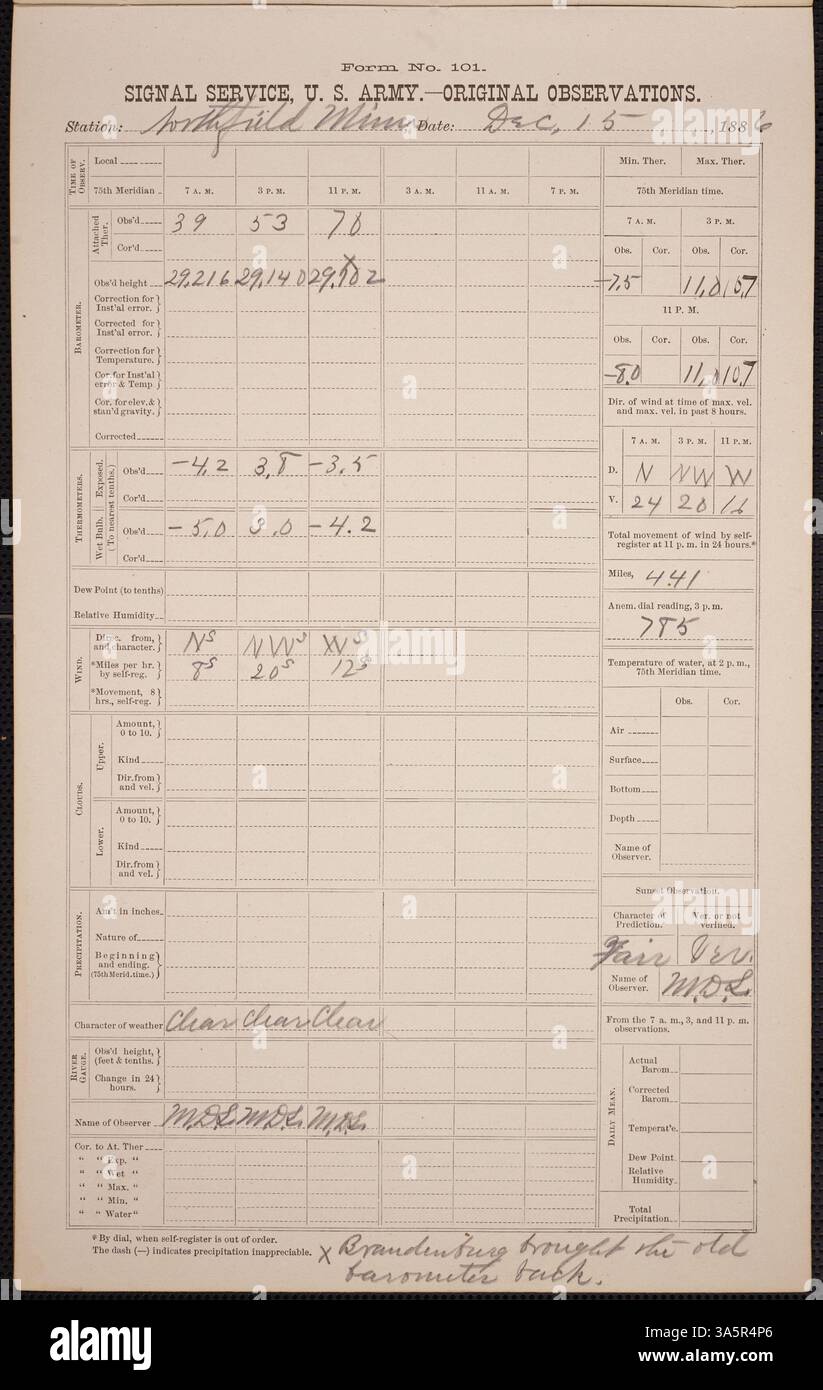 Form No. 101.
SIGNAL SERVICE, U. S. ARMY.—ORIGINAL OBSERVATIONS.
Station: Northfield Minn Date: Dec. 15, 1886
TIME OF OBSERV.
Local
75th Meridian 7 A. M. 3 P. M. 11 P. M. 3 A. M. 11 A. M. 7 P. M.
Attached Ther.
Obs'd 39 53 70
Cor'd
BAROMETER.
Obs'd height 29.216 29.140 29.102
X
Correction for Inst'al error.
Corrected for Inst'al error.
Correction for Temperature.
Cor. for Inst'al error & Temp
Cor. for elev. & stan'd gravity.
Corrected
THERMOMETERS.
(To nearest tenths.)
Exposed.
Obs'd -4.2 3.8 -3.5
Cor'd
Wet Bulb.
Obs'd -5.0 3.0 -4.2
Cor'd
Dew Point (to tenths)
Relative Humidity
WIND.
Direc. from, and character. Ns NWs Ws
*Miles per hr. by self-reg. 8s 20s 12s
*Movement, 8 hrs., self-reg.
CLOUDS.
Upper.
Amount, 0 to 10.
Kind
Dir. from and vel.
Lower.
Amount, 0 to 10.
Kind
Dir. from and vel.
PRECIPITATION.
Am't in inches
Nature of
Beginning and ending. (75th Merid. time.)
Character of weather Clear Clear Clear
RIVER GAUGE.
Obs'd height, (feet & tenths.
Change in 24 hours.
Name of Observer M.D.S. M.D.S. M.D.S.
Cor. to At. Ther
" " Exp. "
" " Wet "
" " Max. "
" " Min. "
" " Water"
Min. Ther. Max. Ther.
75th Meridian time.
7 A. M. 3 P. M.
Obs. Cor. Obs. Cor.
-7.5 11.0 10.7
11 P. M.
Obs. Cor. Obs. Cor.
-8.0 11.0 10.7
Dir. of wind at time of max. vel. and max. vel. in past 8 hours.
7 A. M. 3 P. M. 11 P. M.
D. N NW W
V. 24 20 16
Total movement of wind by self-register at 11 p. m. in 24 hours.*
Miles, 441
Anem. dial reading, 3 p. m.
785
Temperature of water, at 2 p. m., 75th Meridian time.
Obs. Cor.
Air
Surface
Bottom
Depth
Name of Observer.
Sunset Observation.
Character of Prediction. Ver. or not verified.
Fair Ver.
Name of Observer. M.D.S.
From the 7 a. m., 3, and 11 p. m. observations.
DAILY MEAN.
Actual Barom
Corrected Barom
Temperat'e
Dew Point
Relative Humidity
Total Precipitation
* By dial, when self-register is out of order.
The dash (—) indicates precipitation inappreciable.
X Brandenburg brought the old
barometer back.
alamy
a
alamy
Image ID: 3A5R4P6
www.alamy.com